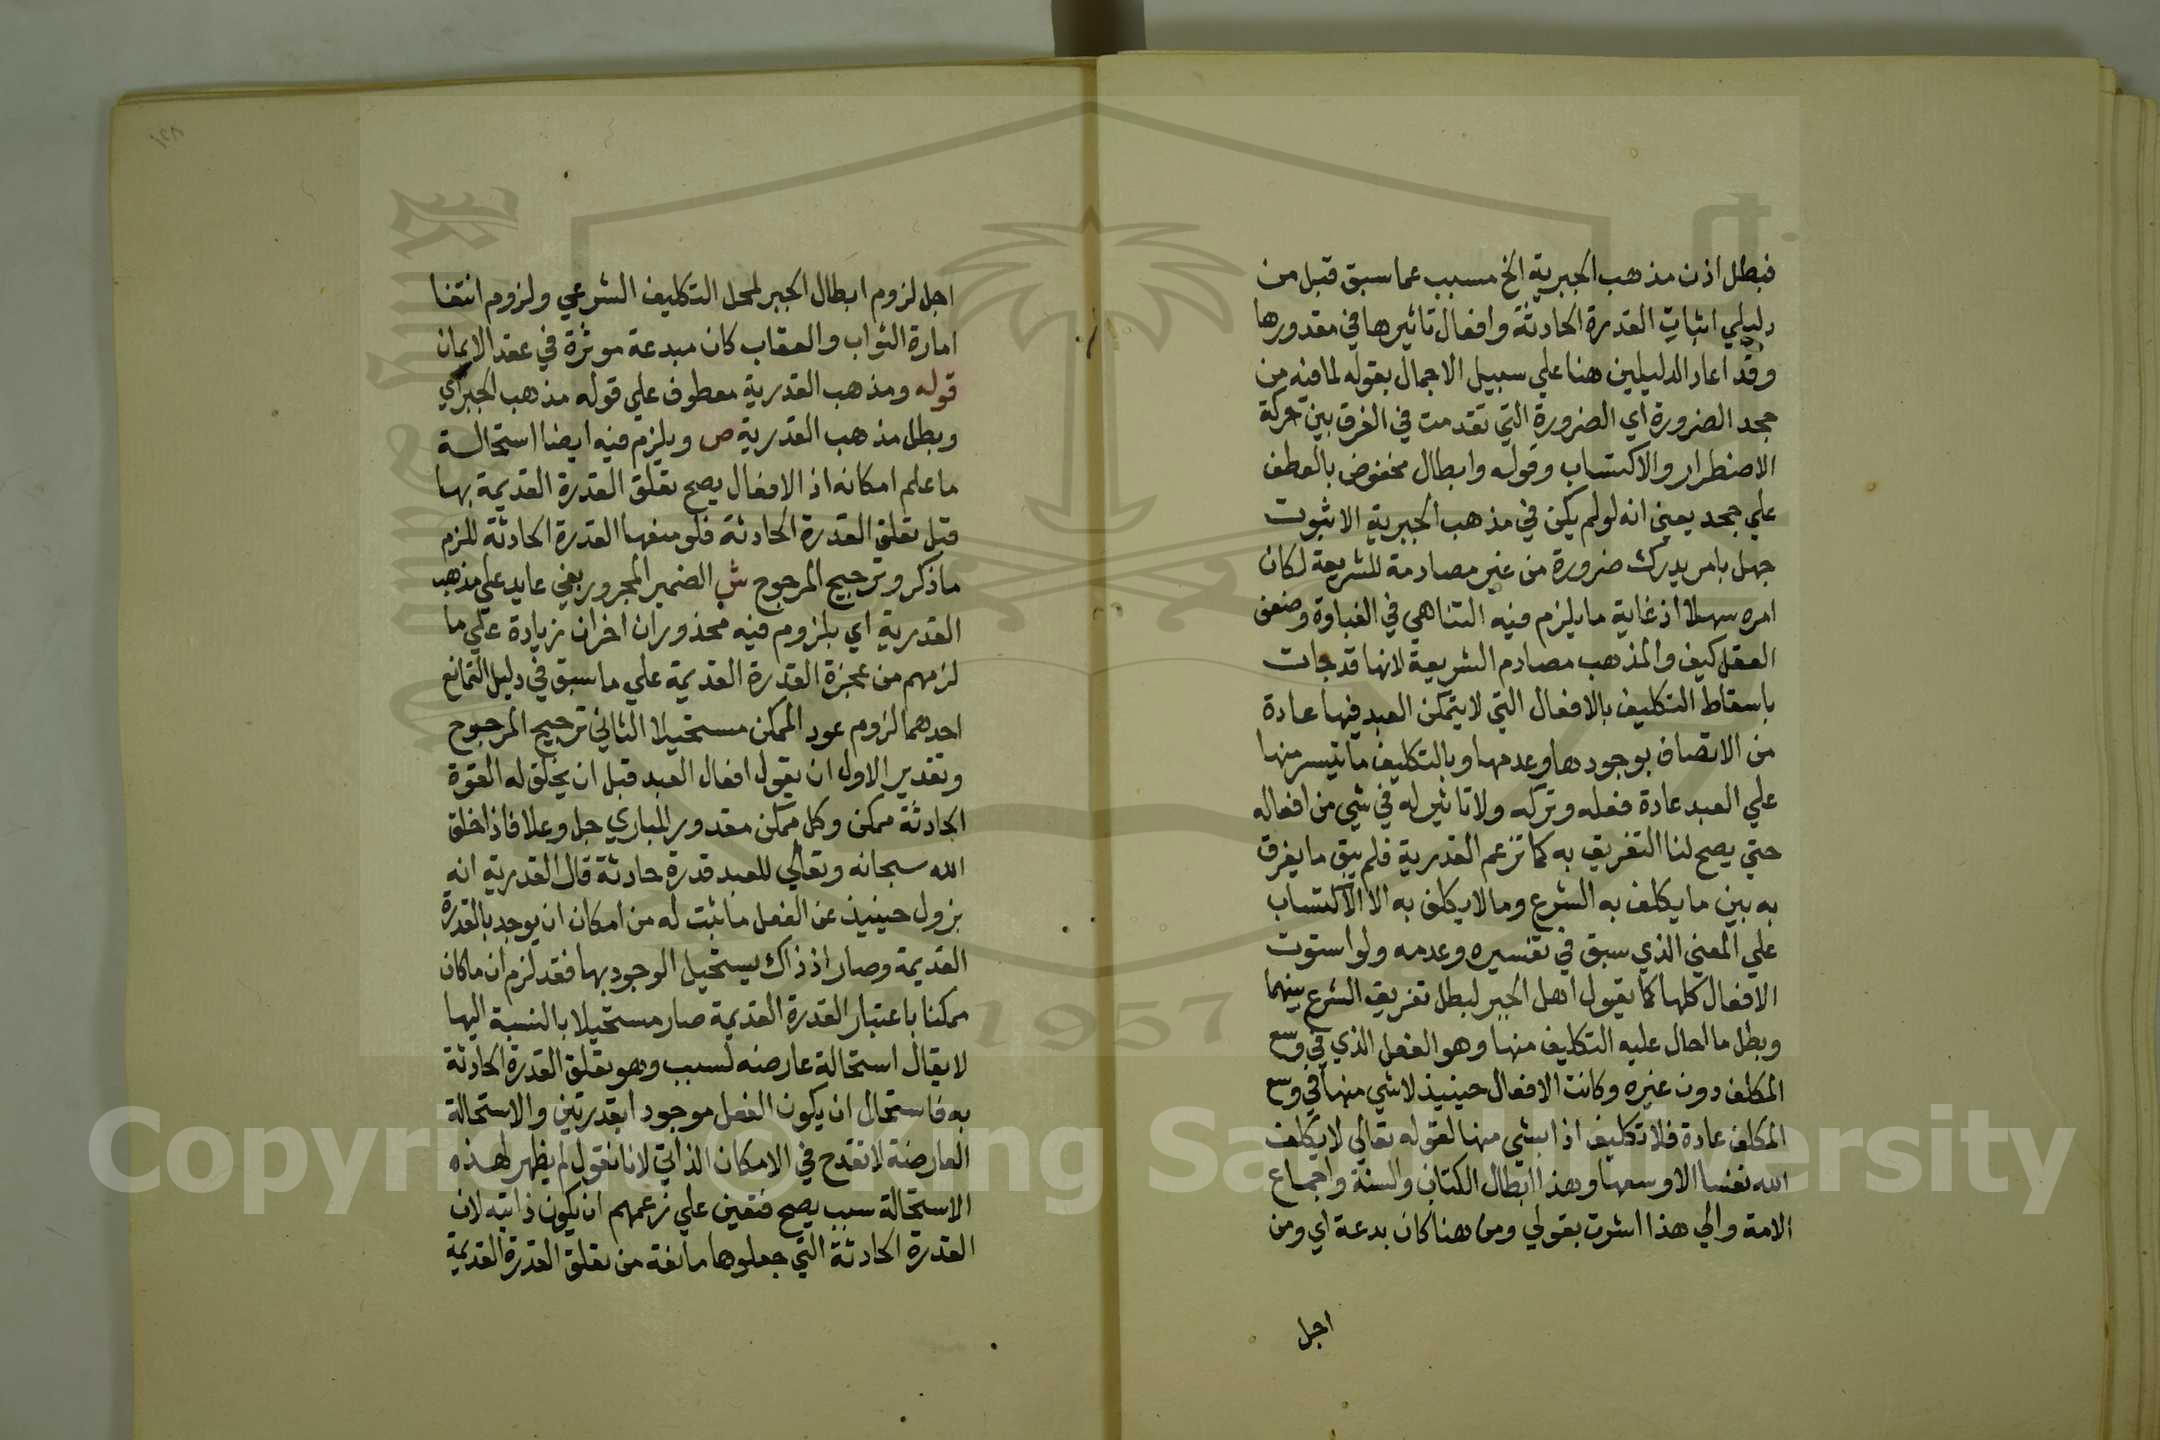 فبطل اذن مذهب الجبرية الخ مسبب عما سبق قبل من
دليلي اثبات القدرة الحادثة وافعال تاثيرها في مقدورها
وقد اعاد الدليلين هنا علي سبيل الاجمال بقوله لما فيه من
جحد الضرورة اي الضرورة التي تقدمت في الفرق بين حركة
الاضطرار والاكتساب وقوله وابطال مخفوض بالعطف
علي جحد يعني انه لو لم يكن في مذهب الجبرية الا ثبوت
جهل بامر يدرك ضرورة من غير مصادمة للشريعة لكان
امره سهلا اذ غاية ما يلزم فيه التناهي في الغباوة وضعف
العقل كيف والمذهب مصادم الشريعة لانها قد جات
باسقاط التكليف بالافعال التي لا يتمكن العبد فيها عادة
من الاتصاف بوجودها وعدمها وبالتكليف ما تيسر منها
علي العبد عادة فعله وتركه ولا تاثير له في شي من افعاله
حتي يصح لنا التفريق به كما تزعم القدرية فلم يبق ما يفرق
به بين ما يكلف به الشرع وما لا يكلف به الا الاكتساب
علي المعني الذي سبق في تفسيره وعدمه ولو استوت
الافعال كلها كما يقول اهل الجبر لبطل تفريق الشرع بينهما
وبطل ما احال عليه التكليف منها وهو الفعل الذي في وسع
المكلف دون غيره وكانت الافعال حينيذ لا شي منها في وسع
المكلف عادة فلا تكليف اذا بشي منها لقوله تعالي لا يكلف
الله نفسا الا وسعها وهذا ابطال الكتاب والسنة واجماع
الامة والي هذا اشرت بقولي ومن هنا كان بدعة اي ومن
اجل
١٢٨
اجل لزوم ابطال الجبر لمحل التكليف الشرعي ولزوم انتفا
امارة الثواب والعقاب كان مبدعة موثرة في عقد الايمان
قوله ومذهب القدرية معطوف علي قوله مذهب الجبر اي
وبطل مذهب القدرية ص ويلزم فيه ايضا استحالة
ما علم امكانه اذ الافعال يصح تعلق القدرة القديمة بها
قبل تعلق القدرة الحادثة فلو منعها القدرة الحادثة للزم
ما ذكر وترجيح المرجوح ش الضمير المجرور بفي عايد علي مذهب
القدرية اي يلزوم فيه محذوران اخران زيادة علي ما
لزمهم من عجزة القدرة القديمة علي ما سبق في دليل التمانع
احدهما لزوم عود الممكن مستحيلا الثاني ترجيح المرجوح
وتقدير الاول ان يقول افعال العبد قبل ان يخلق له القوة
الحادثة ممكن وكل ممكن مقدور للباري جل وعلا فاذا خلق
الله سبحانه وتعالي للعبد قدرة حادثة قال القدرية انه
يزول حينيذ عن الفعل ما ثبت له من امكان ان يوجد بالقدرة
القديمة وصار اذ ذاك يستحيل الوجود بها فقد لزم ان ما كان
ممكنا باعتبار القدرة القديمة صار مستحيلا بالنسبة اليها
لا يقال استحالة عارضه لسبب وهو تعلق القدرة الحادثة
به فاستحال ان يكون الفعل موجودا بقدرتين والاستحالة
العارضة لا تقدح في الامكان الذاتي لانا نقول لم يظهر لهذه
الاستحالة سبب يصح فتعين علي زعمهم ان يكون ذاتيه لان
القدرة الحادثة التي جعلوها مانعة من تعلق القدرة القديمة
1957
Copyright © King Saud University